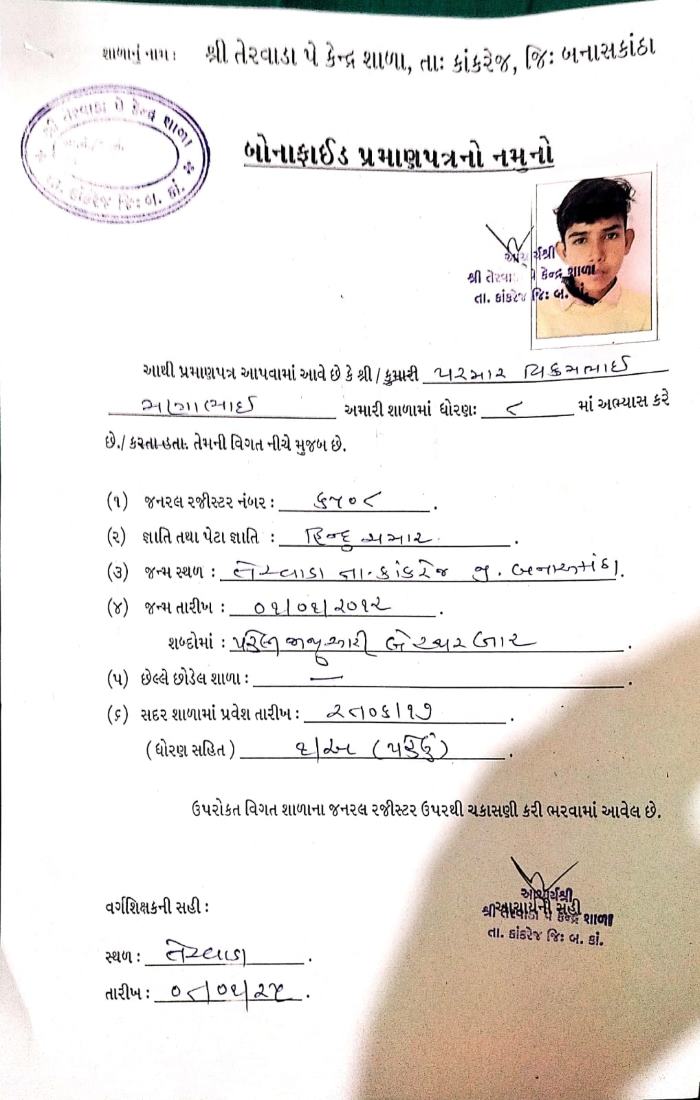 શાળાનું નામ : શ્રી તેરવાડા પે કેન્દ્ર શાળા, તા: કાંકરેજ, જિ: બનાસકાંઠા
શ્રી તેરવાડા પે કેન્દ્ર શાળા
તા. કાંકરેજ જિ: બ. કાં.
બોનાફાઈડ પ્રમાણપત્રનો નમુનો
આચાર્યશ્રી
શ્રી તેરવાડા પે કેન્દ્ર શાળા
તા. કાંકરેજ જિ: બ. કાં.
આથી પ્રમાણપત્ર આપવામાં આવે છે કે શ્રી / કુમારી પરમાર વિક્રમભાઈ
અમારી શાળામાં ધોરણ: ૮ માં અભ્યાસ કરે
છે./ કરતા હતા. તેમની વિગત નીચે મુજબ છે.
(૧) જનરલ રજીસ્ટર નંબર : ૬૧૦૮ .
(૨) જ્ઞાતિ તથા પેટા જ્ઞાતિ : હિન્દુ ચમાર .
(૩) જન્મ સ્થળ : તેરવાડા તા. કાંકરેજ જી. બનાસકાંઠા.
(૪) જન્મ તારીખ : ૦૧/૦૧/૨૦૧૨ .
શબ્દોમાં : પહેલી જાન્યુઆરી બે હજાર બાર .
(૫) છેલ્લે છોડેલ શાળા : — .
(૬) સદર શાળામાં પ્રવેશ તારીખ : .
(ધોરણ સહિત) ૧/અ (પહેલું) .
ઉપરોકત વિગત શાળાના જનરલ રજીસ્ટર ઉપરથી ચકાસણી કરી ભરવામાં આવેલ છે.
વર્ગશિક્ષકની સહી :
આચાર્યશ્રી
આચાર્યની સહી
શ્રી તેરવાડા પે કેન્દ્ર શાળા
તા. કાંકરેજ જિ: બ. કાં.
સ્થળ : તેરવાડા .
તારીખ : .